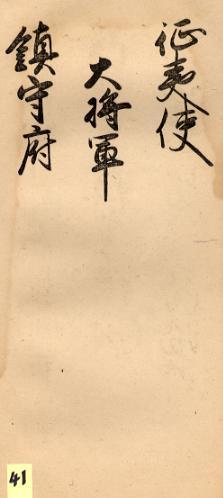 征夷使
大将軍
鎮守府
41